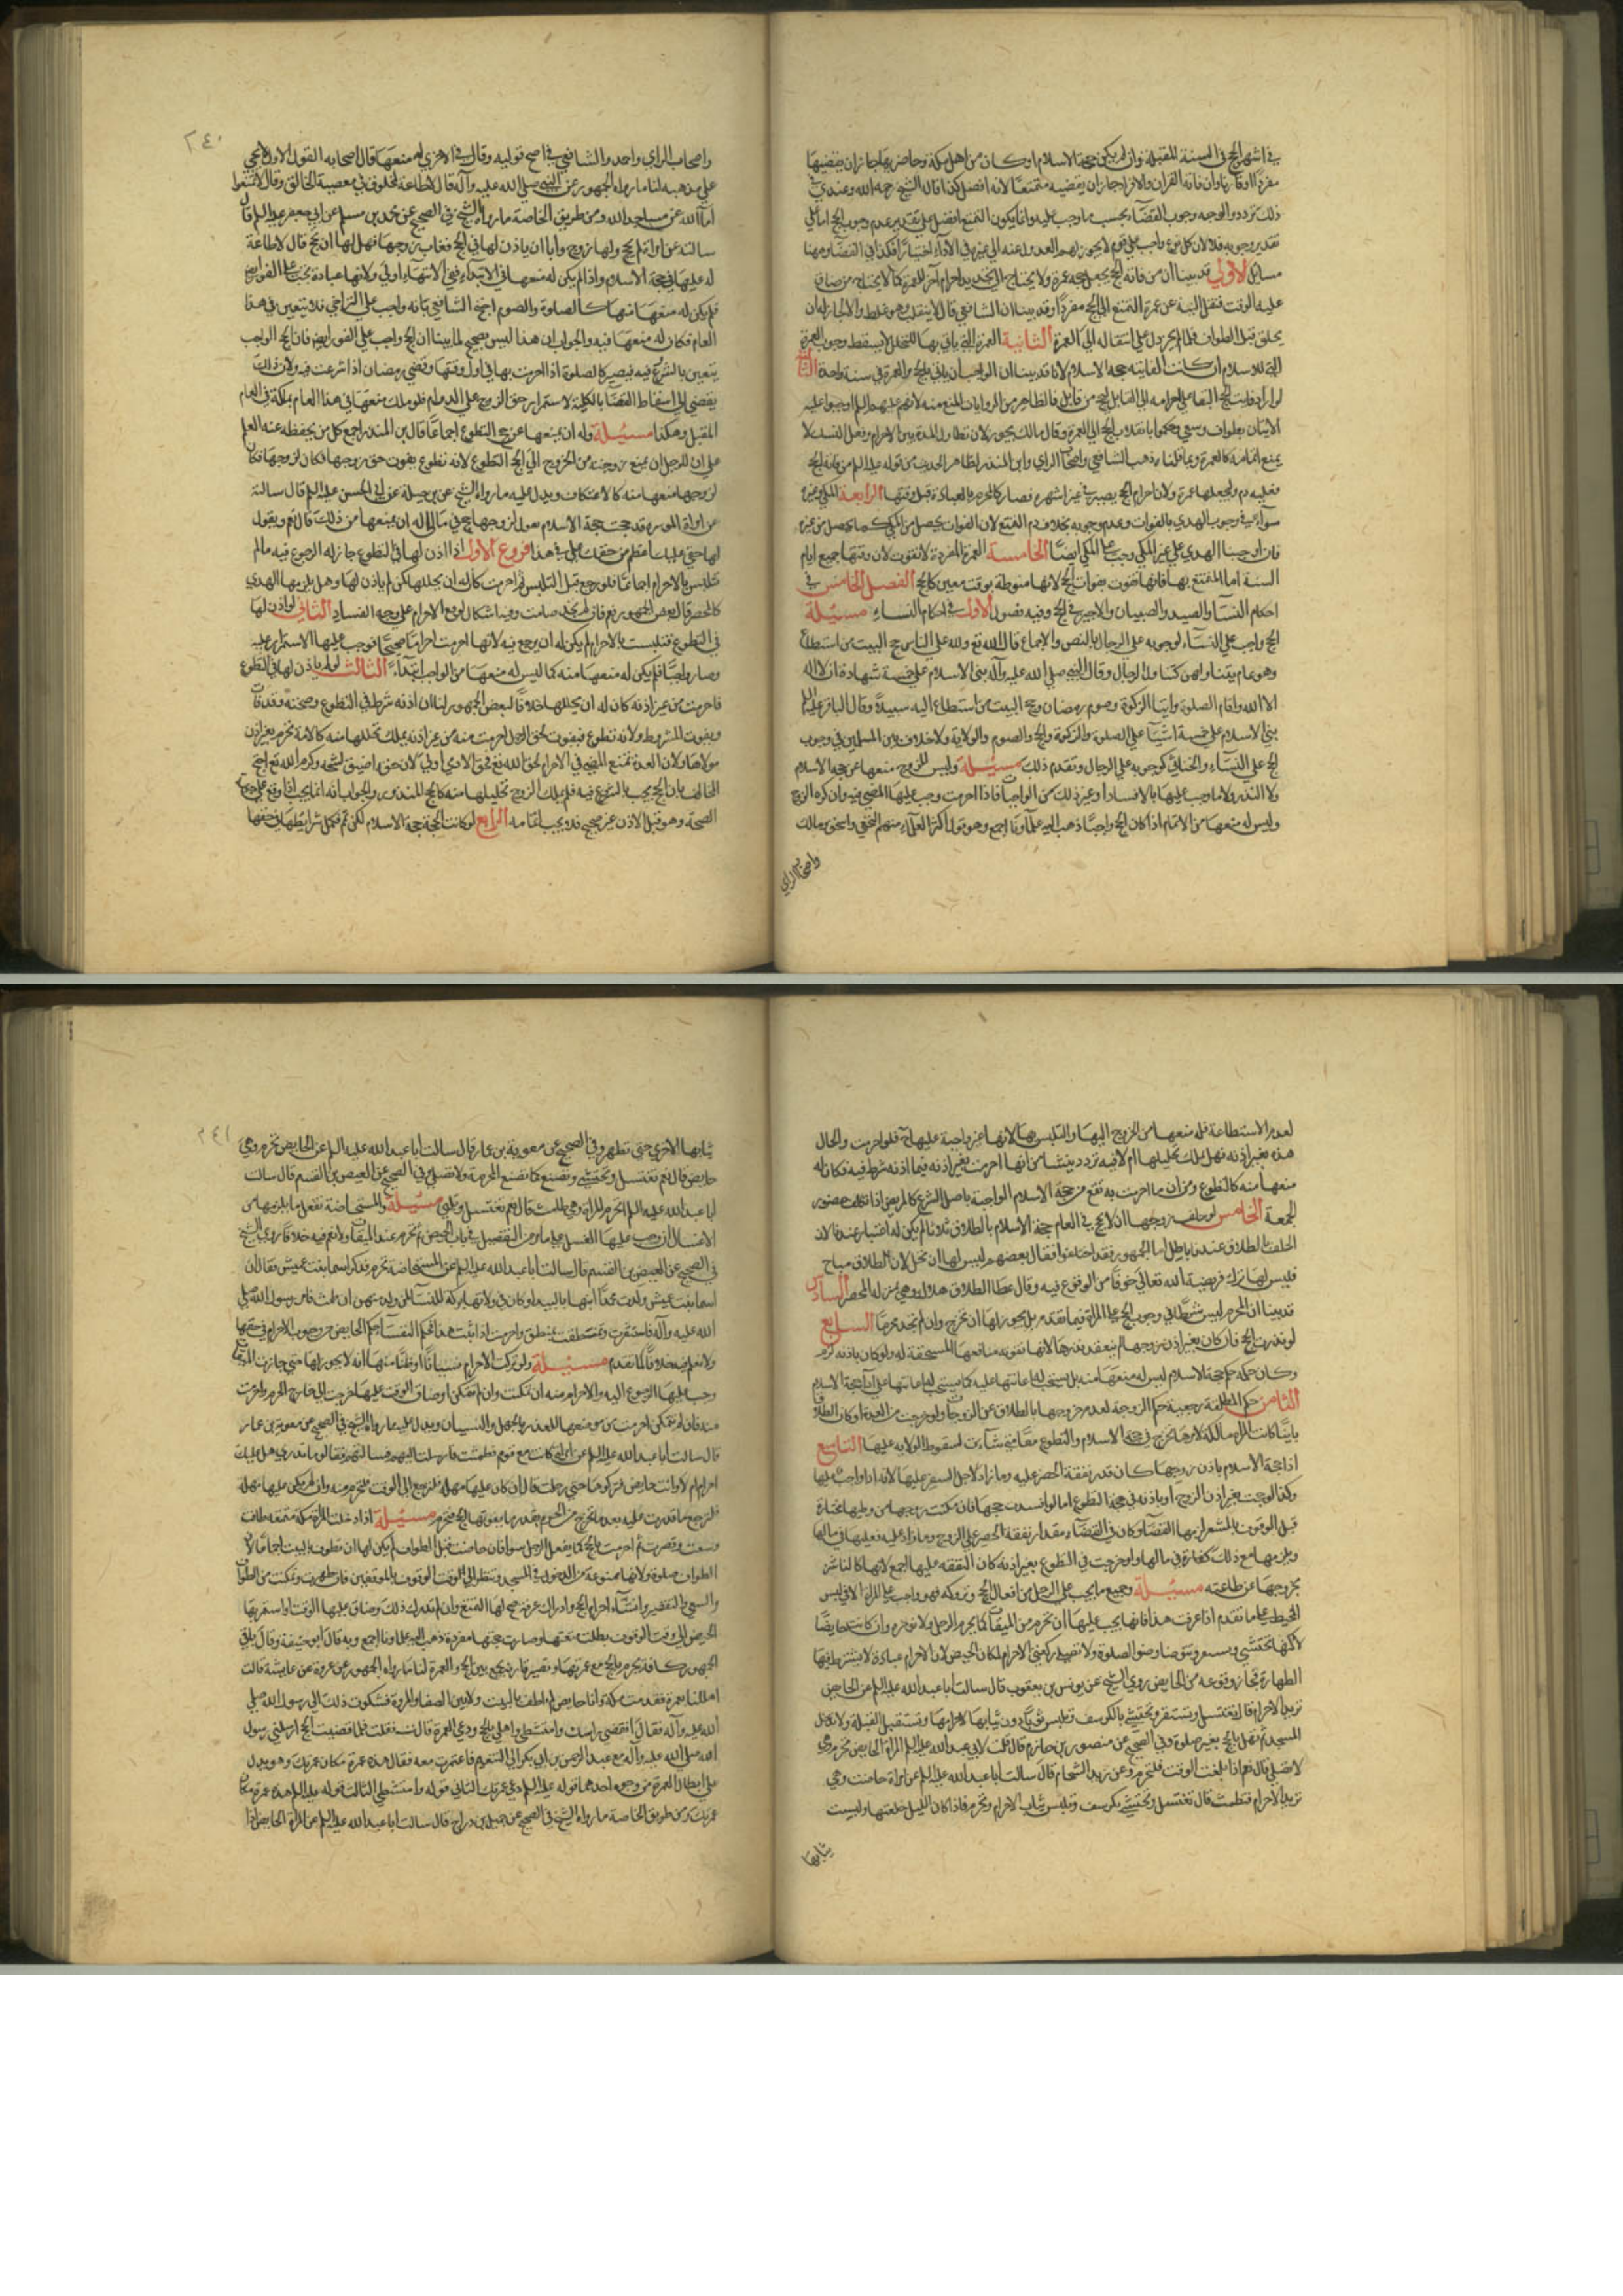 في اشهر الحج في السنة المقبلة وان لم يكن حجة الاسلام او كان من اهل مكة وحاضريها جاز ان يقضيها
مفردا او قارنا وان فاته القران والافراد جاز ان يقضيه متمتعا لانه افضل كذا قال الشيخ رحمه الله وعندي في
ذلك تردد والوجه وجوب القضاء بحسب ما وجب عليه وانما يكون التمتع افضل على تقدير عدم وجوب الحج اما على
تقدير وجوبه فلا لان كل نوع واجب على قوم لا يجوز لهم العدول عنه الى غيره في الاداء اختيارا فكذا في القضاء وهنا
مسائل الاولى قد بينا ان من فاته الحج يجعل حجه عمرة ولا يحتاج الى تجديد احرام آخر للعمرة كما لا يحتاج من ضاق
عليه الوقت فنقل النية عن عمرة التمتع الى الحج مفردا وقد بينا ان الشافعي قال لا ينقلب وهو غلط والا لجاز له ان
يحلق قبل الطواف فلما لم يجز دل على انتقاله الى العمرة الثانية العمرة التي ياتي بها للتحلل لا يسقط وجوب العمرة
التي للاسلام ان كانت الفايته حجة الاسلام لانا قد بينا ان الواجب ان ياتي بالحج والعمرة في سنة واحدة الثالثة
لو اراد فايت الحج البقاء على احرامه الى القابل ليحج من قابل فالظاهر من الروايات المنع منه لانهم عليهم السلم اوجبوا عليه
الاتيان بطواف وسعي وحكموا بانقلاب الحج الى العمرة وقال مالك يجوز لان تطاول المدة بين الاحرام وفعل النسك لا
يمنع اتمامه كالعمرة وبما قلناه ذهب الشافعي واصحاب الراي وابن المنذر لظاهر الحديث من قوله عليه السلم من فاته الحج
فعليه دم وليجعلها عمرة ولان احرام الحج يصير في غير اشهره فصار كالمحرم بالعبادة قبل وقتها الرابعة المكي وغيره
سواء في وجوب الهدي بالفوات وعدم وجوبه بخلاف دم التمتع لان الفوات يحصل من المكي كما يحصل من غيره
فان اوجبنا الهدي على غير المكي وجب على المكي ايضا الخامسة العمرة المفردة لا تفوت لان وقتها جميع ايام
السنة اما المتمتع بها فانها تفوت بفوات الحج لانها منوطة بوقت معين كالحج الفصل الخامس في
احكام النساء والصيد والصبيان والاجير في الحج وفيه فصول الاول في احكام النساء مسئلة
الحج واجب على النساء لوجوبه على الرجال بالنص والاجماع قال الله تع ولله على الناس حج البيت من استطاع
وهو عام يتناولهن كتناوله الرجال وقال النبي صلى الله عليه وآله بني الاسلام على خمسة شهادة ان لا اله
الا الله واقام الصلوة وايتاء الزكوة وصوم رمضان وحج البيت من استطاع اليه سبيلا وقال الباقر عليه السلم
بني الاسلام على خمسة اشياء على الصلوة والزكوة والحج والصوم والولاية ولا خلاف بين المسلمين في وجوب
الحج على النساء والخناثى كوجوبه على الرجال وتقدم ذلك مسئلة وليس للزوج منعها عن حجة الاسلام
ولا النذر ولا ما وجب عليها بالافساد او غير ذلك من الواجبات فاذا احرمت وجب عليها المضي فيه وان كره الزوج
وليس له منعها من الاتمام اذا كان الحج واجبا ذهب اليه علماؤنا اجمع وهو قول اكثر العلماء منهم النخعي واسحق ومالك
واصحاب الراي
٢٤٠
واصحاب الراي واحمد والشافعي في اصح قوليه وقال في الاخر له منعها قال اصحابه القول الاول
على مذهبه لنا ما رواه الجمهور عن النبي صلى الله عليه وآله قال لا طاعة لمخلوق في معصية الخالق وقال لا تمنعوا
اماء الله عن مساجد الله ومن طريق الخاصة ما رواه الشيخ في الصحيح عن محمد بن مسلم عن ابي جعفر عليه السلم قال
سالته عن امراة لم تحج ولها زوج وابى ان ياذن لها في الحج فغاب زوجها فهل لها ان تحج قال لا طاعة
له عليها في حجة الاسلام واذا لم يكن له منعها في الابتداء ففي الانتهاء اولى ولانها عبادة تجب على الفور
فلم يكن له منعها منها كالصلوة والصوم احتج الشافعي بانه واجب على التراخي فلا يتعين في هذا
العام فكان له منعها فيه والجواب ان هذا ليس بصحيح لما بينا ان الحج واجب على الفور ايض فان الحج الواجب
يتعين بالشروع فيه فيصير كالصلوة اذا احرمت بها في اول وقتها وقضي رمضان اذا شرعت فيه ولان ذلك
يفضي الى اسقاط القضاء بالكلية لاستمرار حق الزوج على الدوام فلو ملك منعها في هذا العام لملكه في العام
المقبل وهكذا مسئلة وله ان يمنعها عن حج التطوع اجماعا قال ابن المنذر اجمع كل من يحفظ عنه العلم
على ان للرجل ان يمنع زوجته من الخروج الى الحج التطوع لانه تطوع يفوت حق زوجها فكان لزوجها
منعها منه كالاعتكاف ويدل عليه ما رواه الشيخ عن بن جبلة عن ابي الحسن عليه السلم قال سالته
عن المراة الموسرة قد حجت حجة الاسلام تقول لزوجها احجني من مالي اله ان يمنعها من ذلك قال نعم ويقول
لها حقي عليك اعظم من حقك علي في هذا فروع الاول اذا اذن لها في التطوع جاز له الرجوع فيه ما لم
تتلبس بالاحرام اجماعا فلو رجع قبل التلبس ثم احرمت كان له ان يحللها كمن لم ياذن لها وهل يلزمها الهدي
كالمحصر قال بعض الجمهور نعم فان لم تجد صامت وفيه اشكال لوقوع الاحرام على وجه الفساد الثاني لو اذن لها
في التطوع فتلبست بالاحرام لم يكن له ان يرجع فيه لانها احرمت احراما صحيحا فوجب عليها الاستمرار عليه
وصار واجبا فلم يكن له منعها منه كما ليس له منعها من الواجب ابتداء الثالث لو لم ياذن لها في التطوع
فاحرمت من غير اذنه كان له ان يحللها خلافا لبعض الجمهور لنا ان اذنه شرط في التطوع وصحته وقد فات
ويفوت المشروط ولانه تطوع فيفوت لحق الرجل احرمت منه من غير اذنه يملك تحليلها منه كالامة تحرم بغير اذن
مولاها ولان العدة تمنع المضي في الاحرام لحق الله تع فحق الادمي اولى لان حقه اضيق لشحه وكرم الله تع احتج
المخالف بان الحج يجب بالشروع فيه فلم يملك الزوج تحليلها منه كالحج المنذور والجواب انه انما يجب اذا وقع على وجه
الصحة وهو قبل الاذن غير صحيح فلا يجب اتمامه الرابع لو كانت الحجة حجة الاسلام لكن لم تكمل شرايطها في حقها
لعدم الاستطاعة فله منعها من الخروج اليها والتلبس بها لانها غير واجبة عليها فلو احرمت والحال
هذه بغير اذنه فهل يملك تحليلها ام لا فيه تردد ينشا من انها احرمت بغير اذنه فيما اذنه شرط فيه فكان له
منعها منه كالتطوع ومن ان ما احرمت به يقع عن حجة الاسلام الواجبة باصل الشرع كالمريض اذا تكلف حضور
الجمعة الخامس لو حلف زوجها ان لا تحج في العام حجة الاسلام بالطلاق ثلاثا لم يكن له اعتبار عندنا لان
الحلف بالطلاق عندنا باطل اما الجمهور فقد اختلفوا فقال بعضهم ليس لها ان تحل لان الطلاق مباح
فليس لها ترك فريضة الله تعالى خوفا من الوقوع فيه وقال عطا الطلاق هلاك وهي بمنزلة المحصر السادس
قد بينا ان المحرم ليس شرطا في وجوب الحج على المراة فيما تقدم بل يجوز لها ان تخرج وان لم تجد محرما السابع
لو نذرت الحج فان كان بغير اذن زوجها لم ينعقد نذرها لانها تفوته منافعها المستحقة له ولو كان باذنه لزم
وكان حكمه حكم حجة الاسلام ليس له منعها منه بل يستحب له اعانتها عليه كما يستحب له اعانتها على اداء حجة الاسلام
الثامن حكم المطلقة رجعية حكم الزوجة لعدم خروجها بالطلاق عن الزوجات ولو خرجت من العدة او كان الطلاق
باينا كانت المراة مالكة لامرها تخرج في حجة الاسلام والتطوع معا متى شاءت لسقوط الولاية عليها التاسع
اذا حجت الاسلام باذن زوجها كان قدر نفقة الحضر عليه وما زاد لاجل السفر عليها لانه اداء واجب عليها
وكذا لو حجت بغير اذن الزوج او باذنه في حجة التطوع اما لو افسدت حجها فان مكنت زوجها من وطيها مختارة
قبل الوقوف بالمشعر لزمها القضاء وكان في القضاء مقدار نفقة الحضر على الزوج وما زاد عليه فعليها في مالها
ويلزمها مع ذلك كفارة في مالها ولو خرجت في التطوع بغير اذنه كان النفقة عليها اجمع لانها كالناشز
بخروجها عن طاعته مسئلة وجميع ما يجب على الرجل من افعال الحج وتروكه فهو واجب على المراة الا في لبس
المخيط على ما تقدم اذا عرفت هذا فانها يجب عليها ان تحرم من الميقات كما يحرم الرجل ولا تؤخره وان كانت حايضا
لكنها تحتشي وتستثفر وتتوضا وضوء الصلوة ولا تصلي ركعتي الاحرام لمكان الحيض لان الاحرام عبادة لا يشترط فيها
الطهارة فجاز وقوعه من الحايض روى الشيخ عن يونس بن يعقوب قال سالت ابا عبد الله عليه السلم عن الحايض
تريد الاحرام قال تغتسل وتستثفر وتحتشي بالكرسف وتلبس ثوبا دون ثيابها لاحرامها وتستقبل القبلة ولا تدخل
المسجد ثم تهل بالحج بغير صلوة وفي الصحيح عن منصور بن حازم قال قلت لابي عبد الله عليه السلم المراة الحايض تحرم وهي
لا تصلي قال نعم اذا بلغت الوقت فلتحرم وعن زيد الشحام قال سالت ابا عبد الله عليه السلم عن امراة حاضت وهي
تريد الاحرام فتطمث قال تغتسل وتحتشي بكرسف وتلبس ثياب الاحرام وتحرم فاذا كان الليل خلعتها ولبست
ثيابها
٢٤١
ثيابها الاخرى حتى تطهر وفي الصحيح عن معوية بن عمار قال سالت ابا عبد الله عليه السلم عن الحايض تحرم وهي
حايض قال نعم تغتسل وتحتشي وتصنع كما تصنع المحرمة ولا تصلي وفي الصحيح عن العيص بن القسم قال سالت
ابا عبد الله عليه السلم اتحرم المراة وهي طامث قال نعم تغتسل وتلبي مسئلة والمستحاضة تفعل ما يلزمها من
الاغسال ان وجب عليها الغسل على ما مر من التفصيل في باب الحيض ثم تحرم عند الميقات ولا نعلم فيه خلافا روى الشيخ
في الصحيح عن العيص بن القسم قال سالت ابا عبد الله عليه السلم عن المستحاضة تحرم فذكر اسما بنت عميس فقال ان
اسما بنت عميس ولدت محمدا ابنها بالبيداء وكان في ولادتها بركة للنساء لمن ولد منهن ان طمثت فامر رسول الله صلى
الله عليه وآله فاستثفرت وتنطقت بمنطق واحرمت اذا ثبت هذا فحكم النفساء حكم الحايض في وجوب الاحرام في حقها
ولا نعلم فيه خلافا لما تقدم مسئلة ولو تركت الاحرام نسيانا او ظنا منها انه لا يجوز لها حتى جازت الميقات
وجب عليها الرجوع اليه والاحرام منه ان تمكنت وان لم تتمكن او ضاق الوقت عليها خرجت الى خارج الحرم واحرمت
منه فان لم تتمكن احرمت من موضعها للعذر بالجهل والنسيان ويدل عليه ما رواه الشيخ في الصحيح عن معوية بن عمار
قال سالت ابا عبد الله عليه السلم عن امراة كانت مع قوم فطمثت فارسلت اليهم فسالتهم فقالوا ما ندري هل عليك
احرام ام لا وانت حايض فتركوها حتى دخلت قال ان كان عليها مهلة فلترجع الى الوقت فلتحرم منه وان لم يكن عليها مهلة
فلترجع ما قدرت عليه بعد ما تخرج من الحرم بقدر ما لا يفوتها الحج فتحرم مسئلة اذا دخلت المراة مكة متمتعة طافت
وسعت وقصرت ثم احرمت بالحج كما يفعل الرجل سواء فان حاضت قبل الطواف لم يكن لها ان تطوف بالبيت اجماعا لان
الطواف صلوة ولانها ممنوعة من الدخول في المسجد وتنتظر الى الوقت الوقوف بالموقفين فان طهرت وتمكنت من الطواف
والسعي والتقصير وانشاء احرام الحج وادراك عرفة صح لها التمتع وان لم تدرك ذلك وضاق عليها الوقت او استمر بها
الحيض الى وقت الوقوف بطلت متعتها وصارت حجتها مفردة ذهب اليه علماؤنا اجمع وبه قال ابو حنيفة وقال باقي
الجمهور كافة تحرم بالحج مع عمرتها وتصير قارنة تجمع بين الحج والعمرة لنا ما رواه الجمهور عن عروة عن عايشة قالت
اهللنا بعمرة فقدمت مكة وانا حايض لم اطف بالبيت ولا بين الصفا والمروة فشكوت ذلك الى رسول الله صلى
الله عليه وآله فقال انقضي راسك وامتشطي واهلي بالحج ودعي العمرة قالت ففعلت فلما قضيت الحج ارسلني رسول
الله صلى الله عليه وآله مع عبد الرحمن بن ابي بكر الى التنعيم فاعتمرت معه فقال هذه عمرة مكان عمرتك وهو يدل
على ابطال العمرة من وجوه احدها قوله عليه السلم دعي عمرتك الثاني قوله وامتشطي الثالث قوله عليه السلم هذه عمرة مكان
عمرتك ومن طريق الخاصة ما رواه الشيخ في الصحيح عن جميل بن دراج قال سالت ابا عبد الله عليه السلم عن المراة الحايض اذا